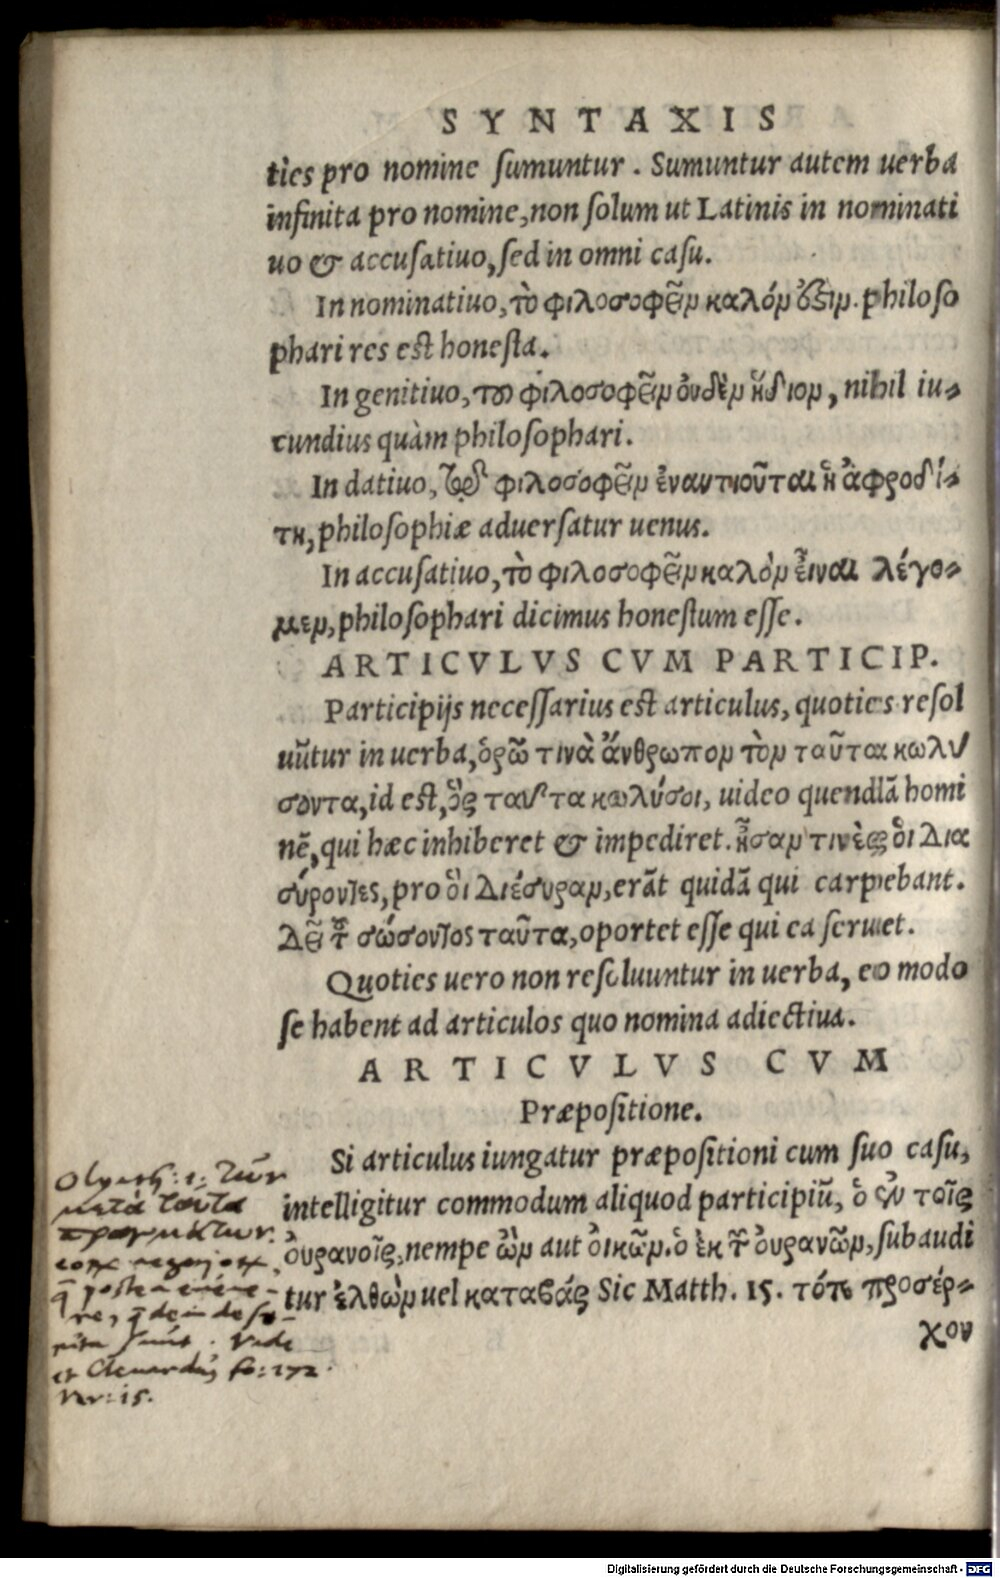 SYNTAXIS
ties pro nomine ſumuntur. Sumuntur autem uerba
infinita pro nomine, non ſolum ut Latinis in nominati
uo & accuſatiuo, ſed in omni caſu.
In nominatiuo, τὸ φιλοσοφεῖν καλόν ὅξιν. philoſo
phari res eſt honeſta.
In genitiuo, του φιλοσοφεῖν ὀυδὲν ἥδιον, nihil iu-
cundius quàm philoſophari.
In datiuo, τῷ φιλοσοφεῖν ἐναντιοῦται ἡ ἀφροδί-
τη, philoſophiæ aduerſatur uenus.
In accuſatiuo, τὸ φιλοσοφεῖν καλὸν εἶναι λέγο-
μεν, philoſophari dicimus honeſtum eſſe.
ARTICVLVS CVM PARTICIP.
Participijs neceſſarius eſt articulus, quoties reſol
uũtur in uerba, ὁρῶ τινὰ ἄνθρωπον τὸν ταῦτα κωλυ
σοντα, id eſt, ὃς ταῦτα κωλύσοι, uideo quendã homi
nẽ, qui hæc inhiberet & impediret. ἦσαν τινὲς ὁι δια
σύροντες, pro ὅι διέσυραν, erãt quidã qui carpebant.
Δεῖ τ̃ σώσοντος ταῦτα, oportet eſſe qui ea ſeruet.
Quoties uero non reſoluuntur in uerba, eo modo
ſe habent ad articulos quo nomina adiectiua.
ARTICVLVS CVM
Præpoſitione.
Si articulus iungatur præpoſitioni cum ſuo caſu,
intelligitur commodum aliquod participiũ, ὁ ἐν τοῖς
ὀυρανοῖς, nempe ὢν aut ὀικῶν. ὁ ἐκ τ̃ ὀυρανῶν, ſubaudi
tur ἐλθὼν uel καταβάς Sic Matth. 15. τότε προσέρ-
χον
Olynth: 1: τῶν
μετὰ ταῦτα
πραγμάτων.
re, q̃ deinde ſe-
ſunt. Vide
et Clenardũ fo: 172.
Nr: 15.
Digitalisierung gefördert durch die Deutsche Forschungsgemeinschaft - DFG